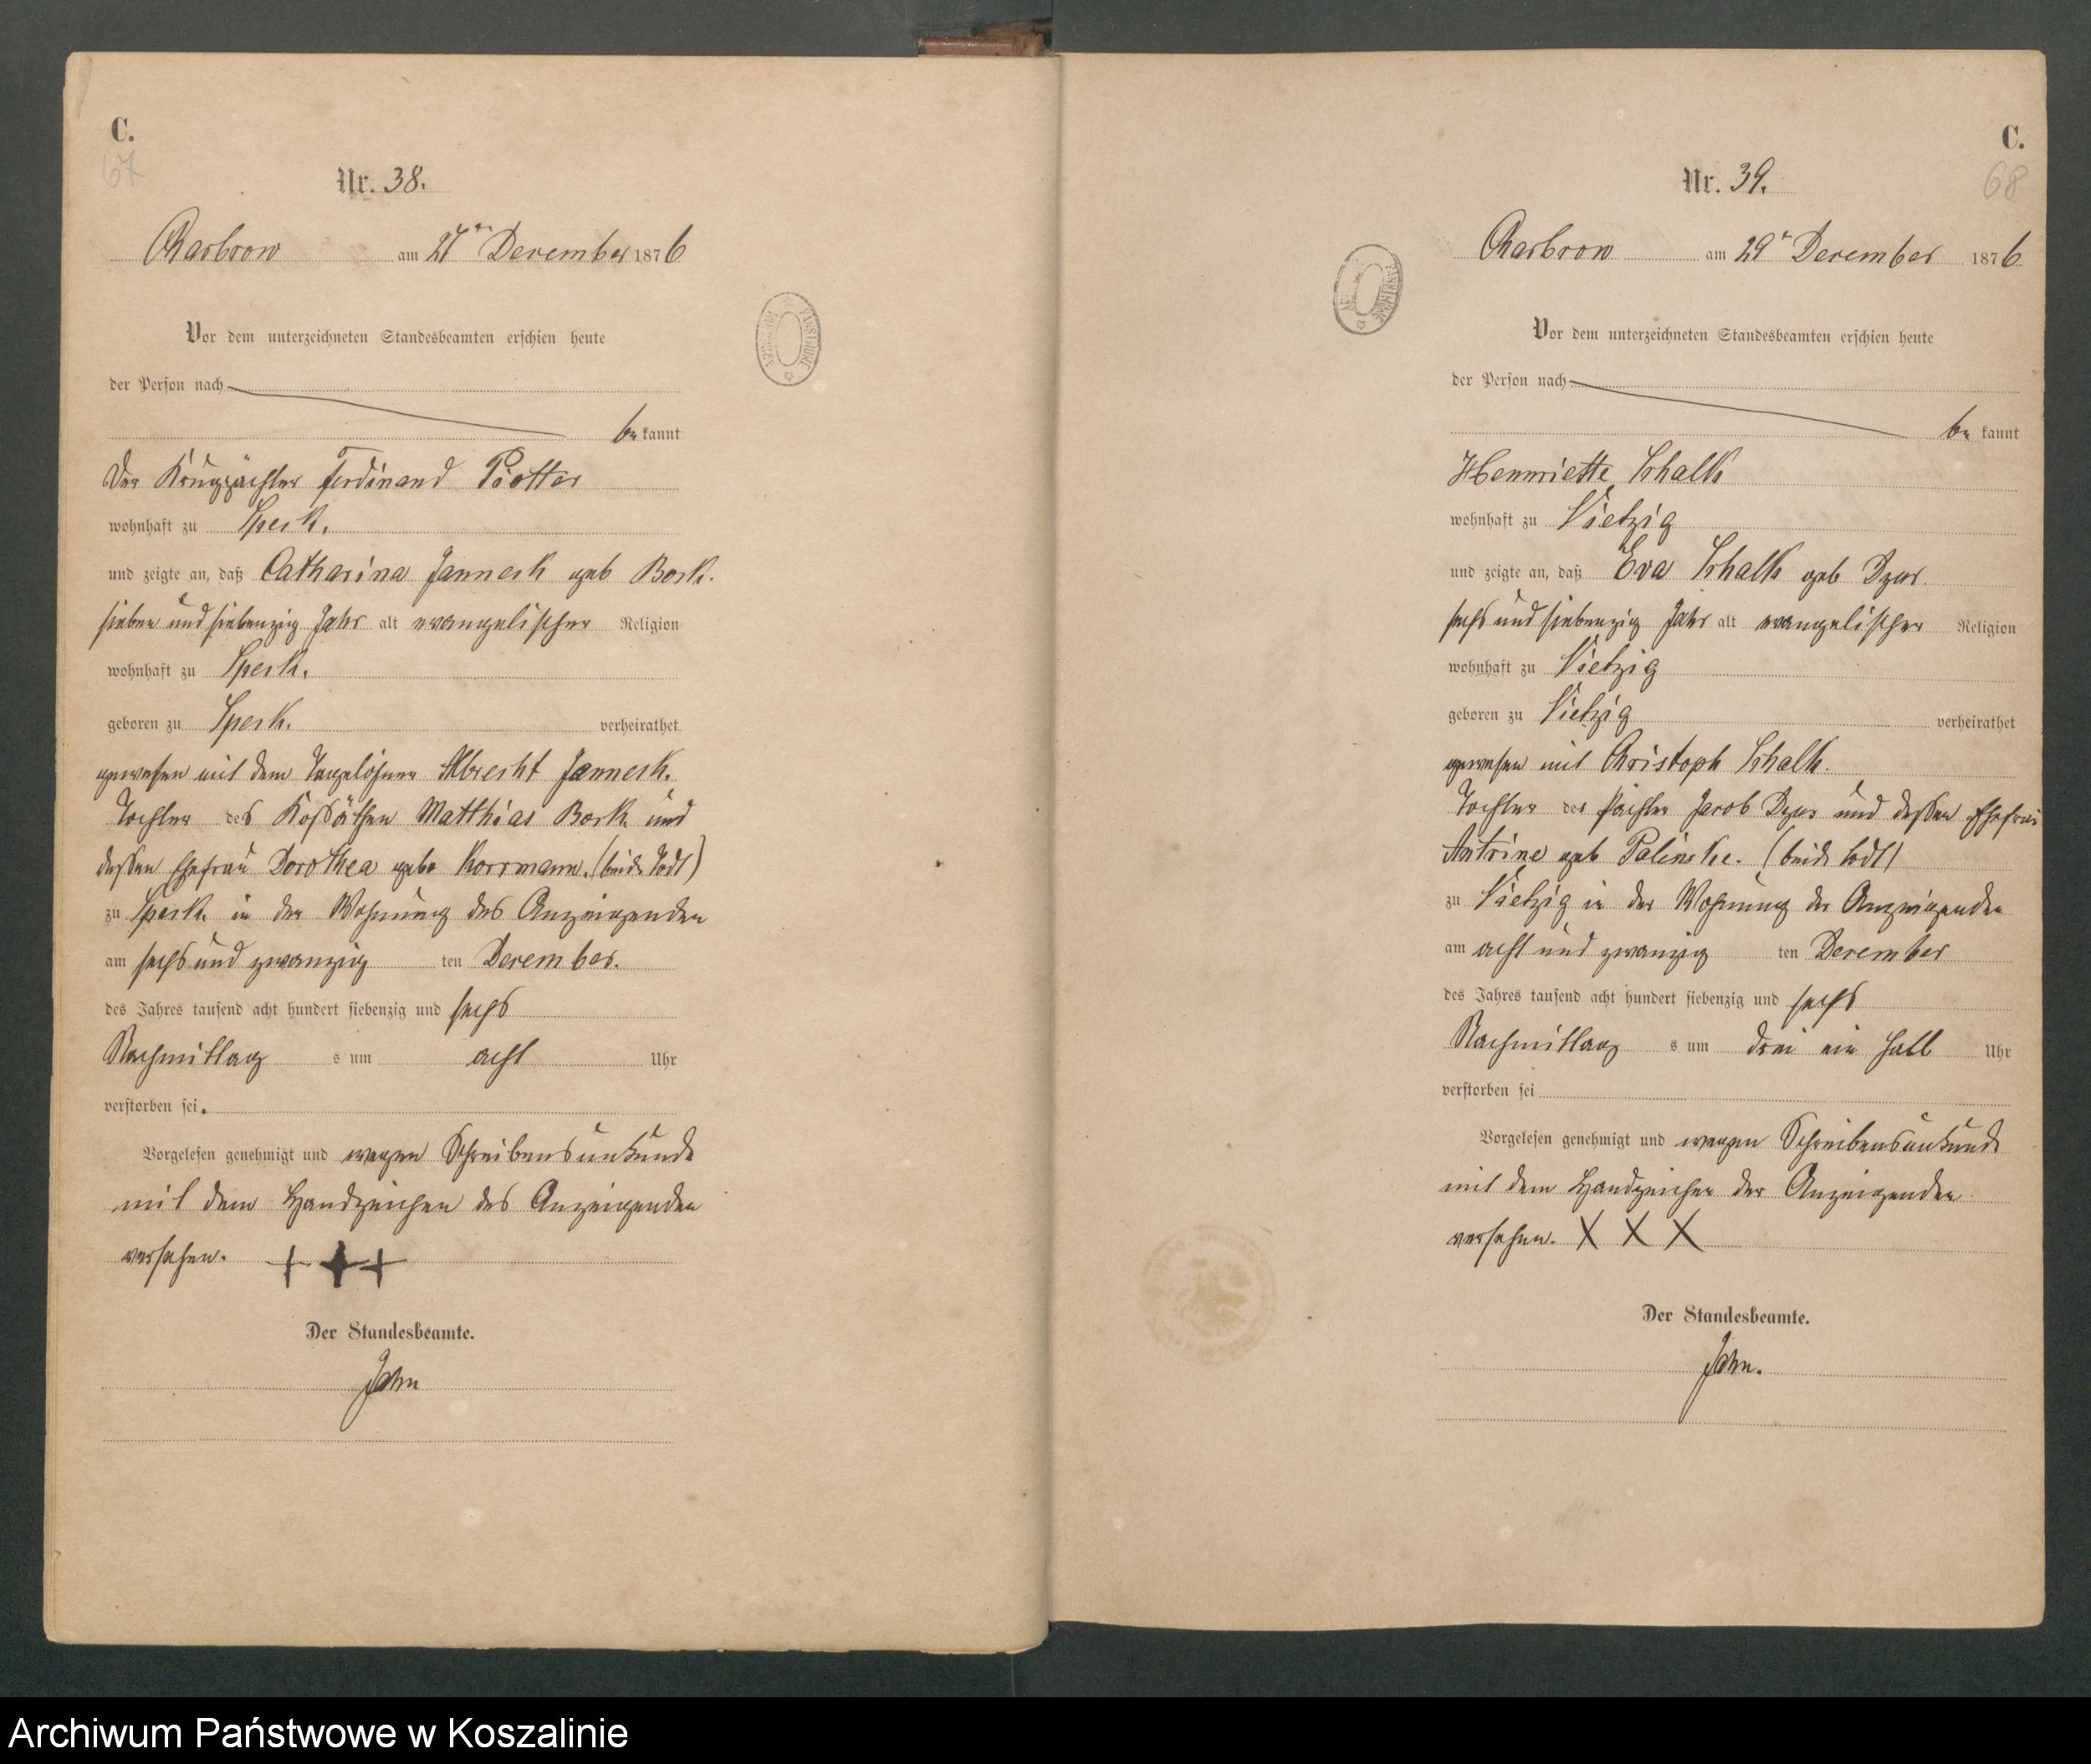 C.
67
Nr. 38.
Charbrow am 27n December 1876
Vor dem unterzeichneten Standesbeamten erschien heute
der Person nach
bekannt
Der Krugpächter Ferdinand Piotter
wohnhaft zu Speck.
und zeigte an, daß Catharina Janneck geb Bock.
sieben und siebenzig Jahr alt evangelischer Religion
wohnhaft zu Speck.
geboren zu Speck. verheirathet
gewesen mit dem Tagelöhner Albrecht Janneck.
Tochter des Koßäthen Matthias Bock und
dessen Ehefrau Dorothea gebo Korrmann. (beide Todt)
zu Speck in der Wohnung des Anzeigenden
am sechs und zwanzig ten December.
des Jahres tausend acht hundert siebenzig und sechs
Nachmittag s um acht Uhr
verstorben sei.
Vorgelesen genehmigt und wegen Schreibensunkunde
mit dem Handzeichen des Anzeigenden
versehen. + + +
Der Standesbeamte.
Jahn
C.
68
Nr. 39.
Charbrow am 29n December 1876
Vor dem unterzeichneten Standesbeamten erschien heute
der Person nach
be kannt
Hennriette Schalk
wohnhaft zu Vietzig
und zeigte an, daß Eva Schalk geb Dzus.
sechs und siebenzig Jahr alt evangelischer Religion
wohnhaft zu Vietzig
geboren zu Vietzig verheirathet
gewesen mit Christoph Schalk.
Tochter der Pächter Jacob Dzus und dessen Ehefrau
geb (beide todt)
zu Vietzig in der Wohnung der Anzeigenden
am acht und zwanzig ten December
des Jahres tausend acht hundert siebenzig und sechs
Nachmittag s um drei ein halb Uhr
verstorben sei
Vorgelesen genehmigt und wegen Schreibensunkunde
mit dem Handzeichen der Anzeigenden
versehen. X X X
Der Standesbeamte.
Jahn.
Archiwum Państwowe w Koszalinie